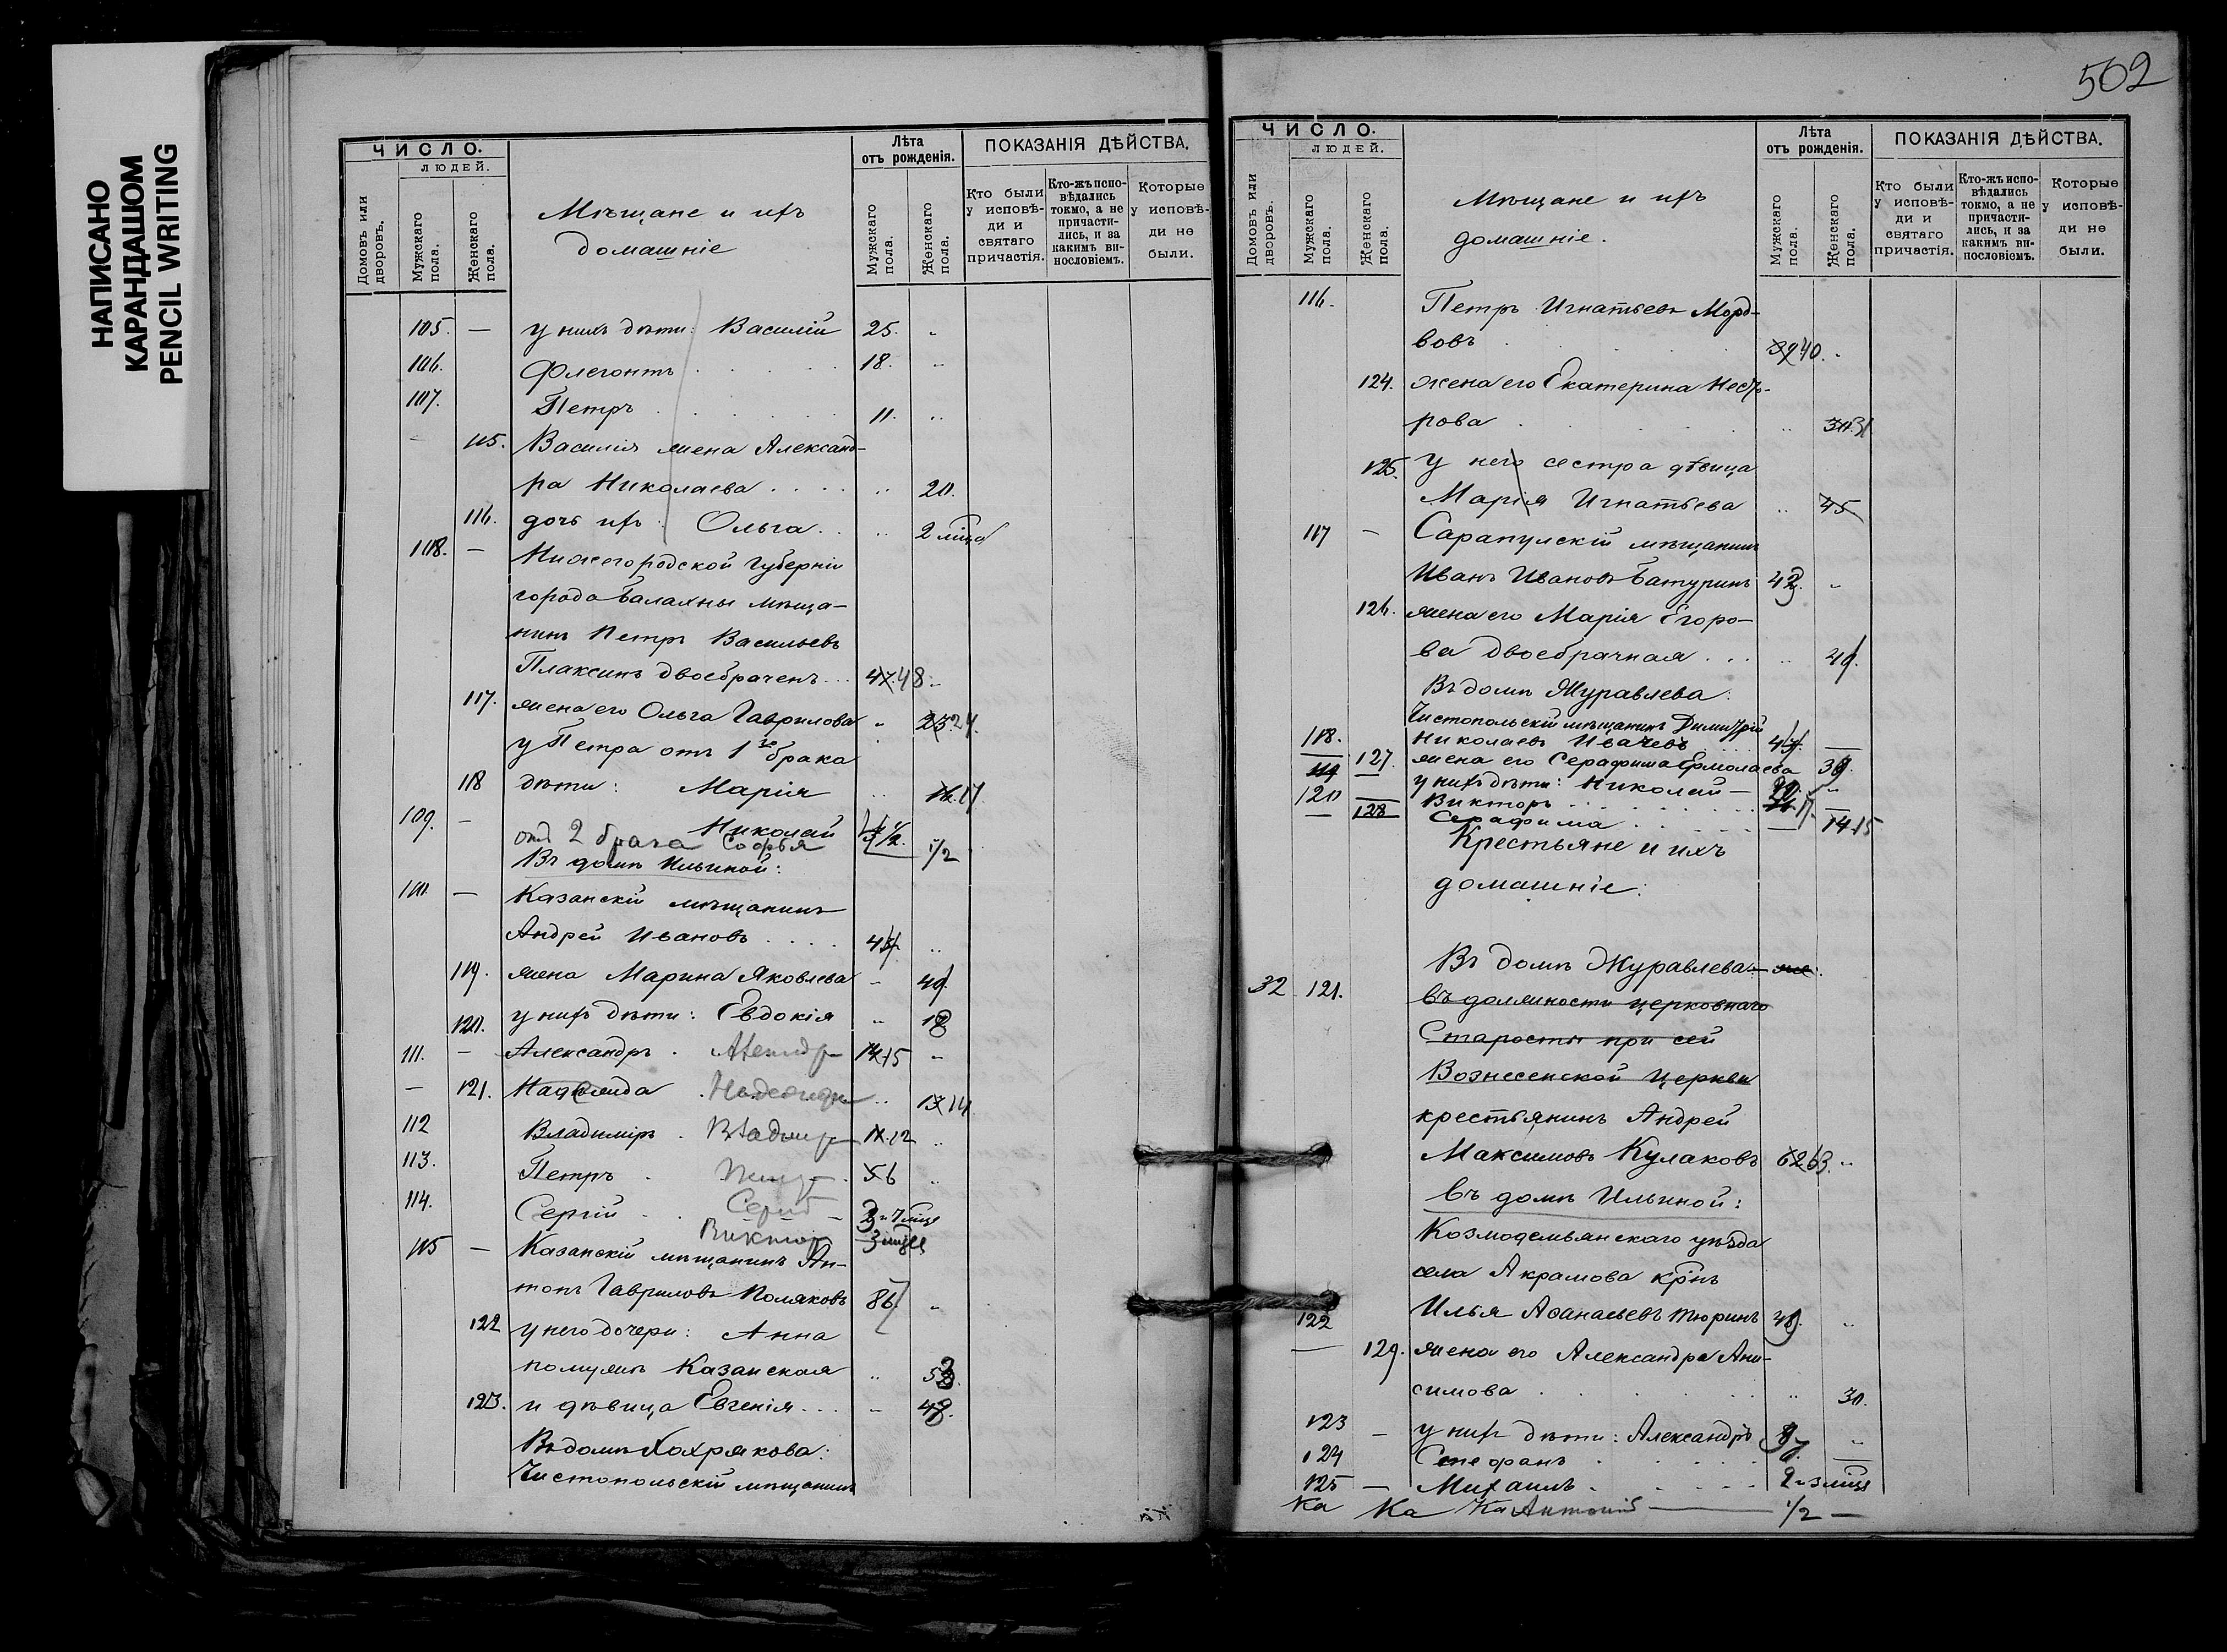 НАПИСАНО
КАРАНДАШОМ
PENCIL WRITING
ЧИСЛО.
ЛЮДЕЙ.
Домовъ или дворовъ.
Мужскаго пола.
Женскаго пола.
Мѣщане и ихъ
домашніе
Лѣта
отъ рожденія.
Мужскаго пола.
Женскаго пола.
ПОКАЗАНІЯ ДѢЙСТВА.
Кто были у исповѣди и святаго причастія.
Кто-жъ исповѣдались токмо, а не причастились, и за какимъ винословіемъ.
Которые у исповѣди не были.
105. — у нихъ дѣти: Василій 25. "
106. Флегонтъ 18. "
107. Петръ 11. "
— 115. Василія жена Александ-
ра Николаева " 20.
116. дочь ихъ: Ольга " 2 мѣс.
108. — Нижегородской губерніи
города Балахны мѣща-
нинъ Петръ Васильевъ
Плаксинъ двоебраченъ 47. 48 "
117. жена его Ольга Гаврилова " 23. 24.
у Петра отъ 1го брака
118 дѣти: Марія " 16. 17
109. — Николай
отъ 2 брака Софья 1/2
Въ домѣ Ильиной:
110. — Казанскій мѣщанинъ
Андрей Ивановъ "
119. жена Марина Яковлева "
120. у нихъ дѣти: Евдокія " 18
111. — Александръ 14 15 "
— 121. Надежда Надежда " 13 14
112 Владиміръ Владимір 11. 12 "
113. Петръ Петр 5 6 "
114. Сергій Сергій
Виктор 3 мѣс
115 — Казанскій мѣщанинъ Ан-
тонъ Гавриловъ Поляковъ "
122 у него дочери: Анна
по мужѣ Казанская "
123. и дѣвица Евгенія "
Въ домѣ Хохрякова:
Чистопольскій мѣщанинъ
502
ЧИСЛО.
ЛЮДЕЙ.
Домовъ или дворовъ.
Мужскаго пола.
Женскаго пола.
Мѣщане и ихъ
домашніе.
Лѣта
отъ рожденія.
Мужскаго пола.
Женскаго пола.
ПОКАЗАНІЯ ДѢЙСТВА.
Кто были у исповѣди и святаго причастія.
Кто-жъ исповѣдались токмо, а не причастились, и за какимъ винословіемъ.
Которые у исповѣди не были.
116. Петръ Игнатьевъ Морд-
вовъ 39 40. "
124. жена его Екатерина Несте-
рова " 30. 31
125. у него сестра дѣвица
Марія Игнатьева " 45
117 — Сарапулскій мѣщанинъ
Иванъ Ивановъ Батуринъ "
126. жена его Марія Егоро-
ва двоебрачная "
Въ домѣ Журавлева:
Чистопольскій мѣщанинъ Димитрій
118. Николаевъ Ивачевъ
127. жена его Серафима Ермолаева
119 у нихъ дѣти: Николай —
120 Викторъ 17.
128 Серафима 14 15
Крестьяне и ихъ
домашніе:
Въ домѣ Журавлева:
32 121. въ должности церковнаго
Старосты при сей
Вознесенской церкви
крестьянинъ Андрей
Максимовъ Кулаковъ 62 63. "
Въ домѣ Ильиной:
Козмодемьянскаго уѣзда
села Акрамова кр-нъ
122 Илья Аѳанасьевъ Тюринъ "
129. жена его Александра Ани-
симова " 30.
123 — у нихъ дѣти: Александръ "
124 Стефанъ 7.
125 — Михаилъ 2 - 3 мѣс
Ка Ка Ка Антоній — 1/2 —